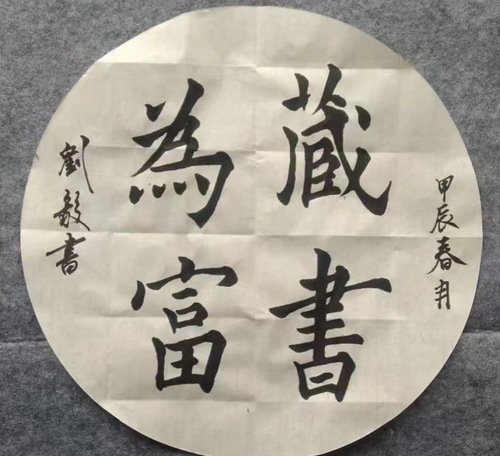 甲辰春月
藏書
為富
劉毅書